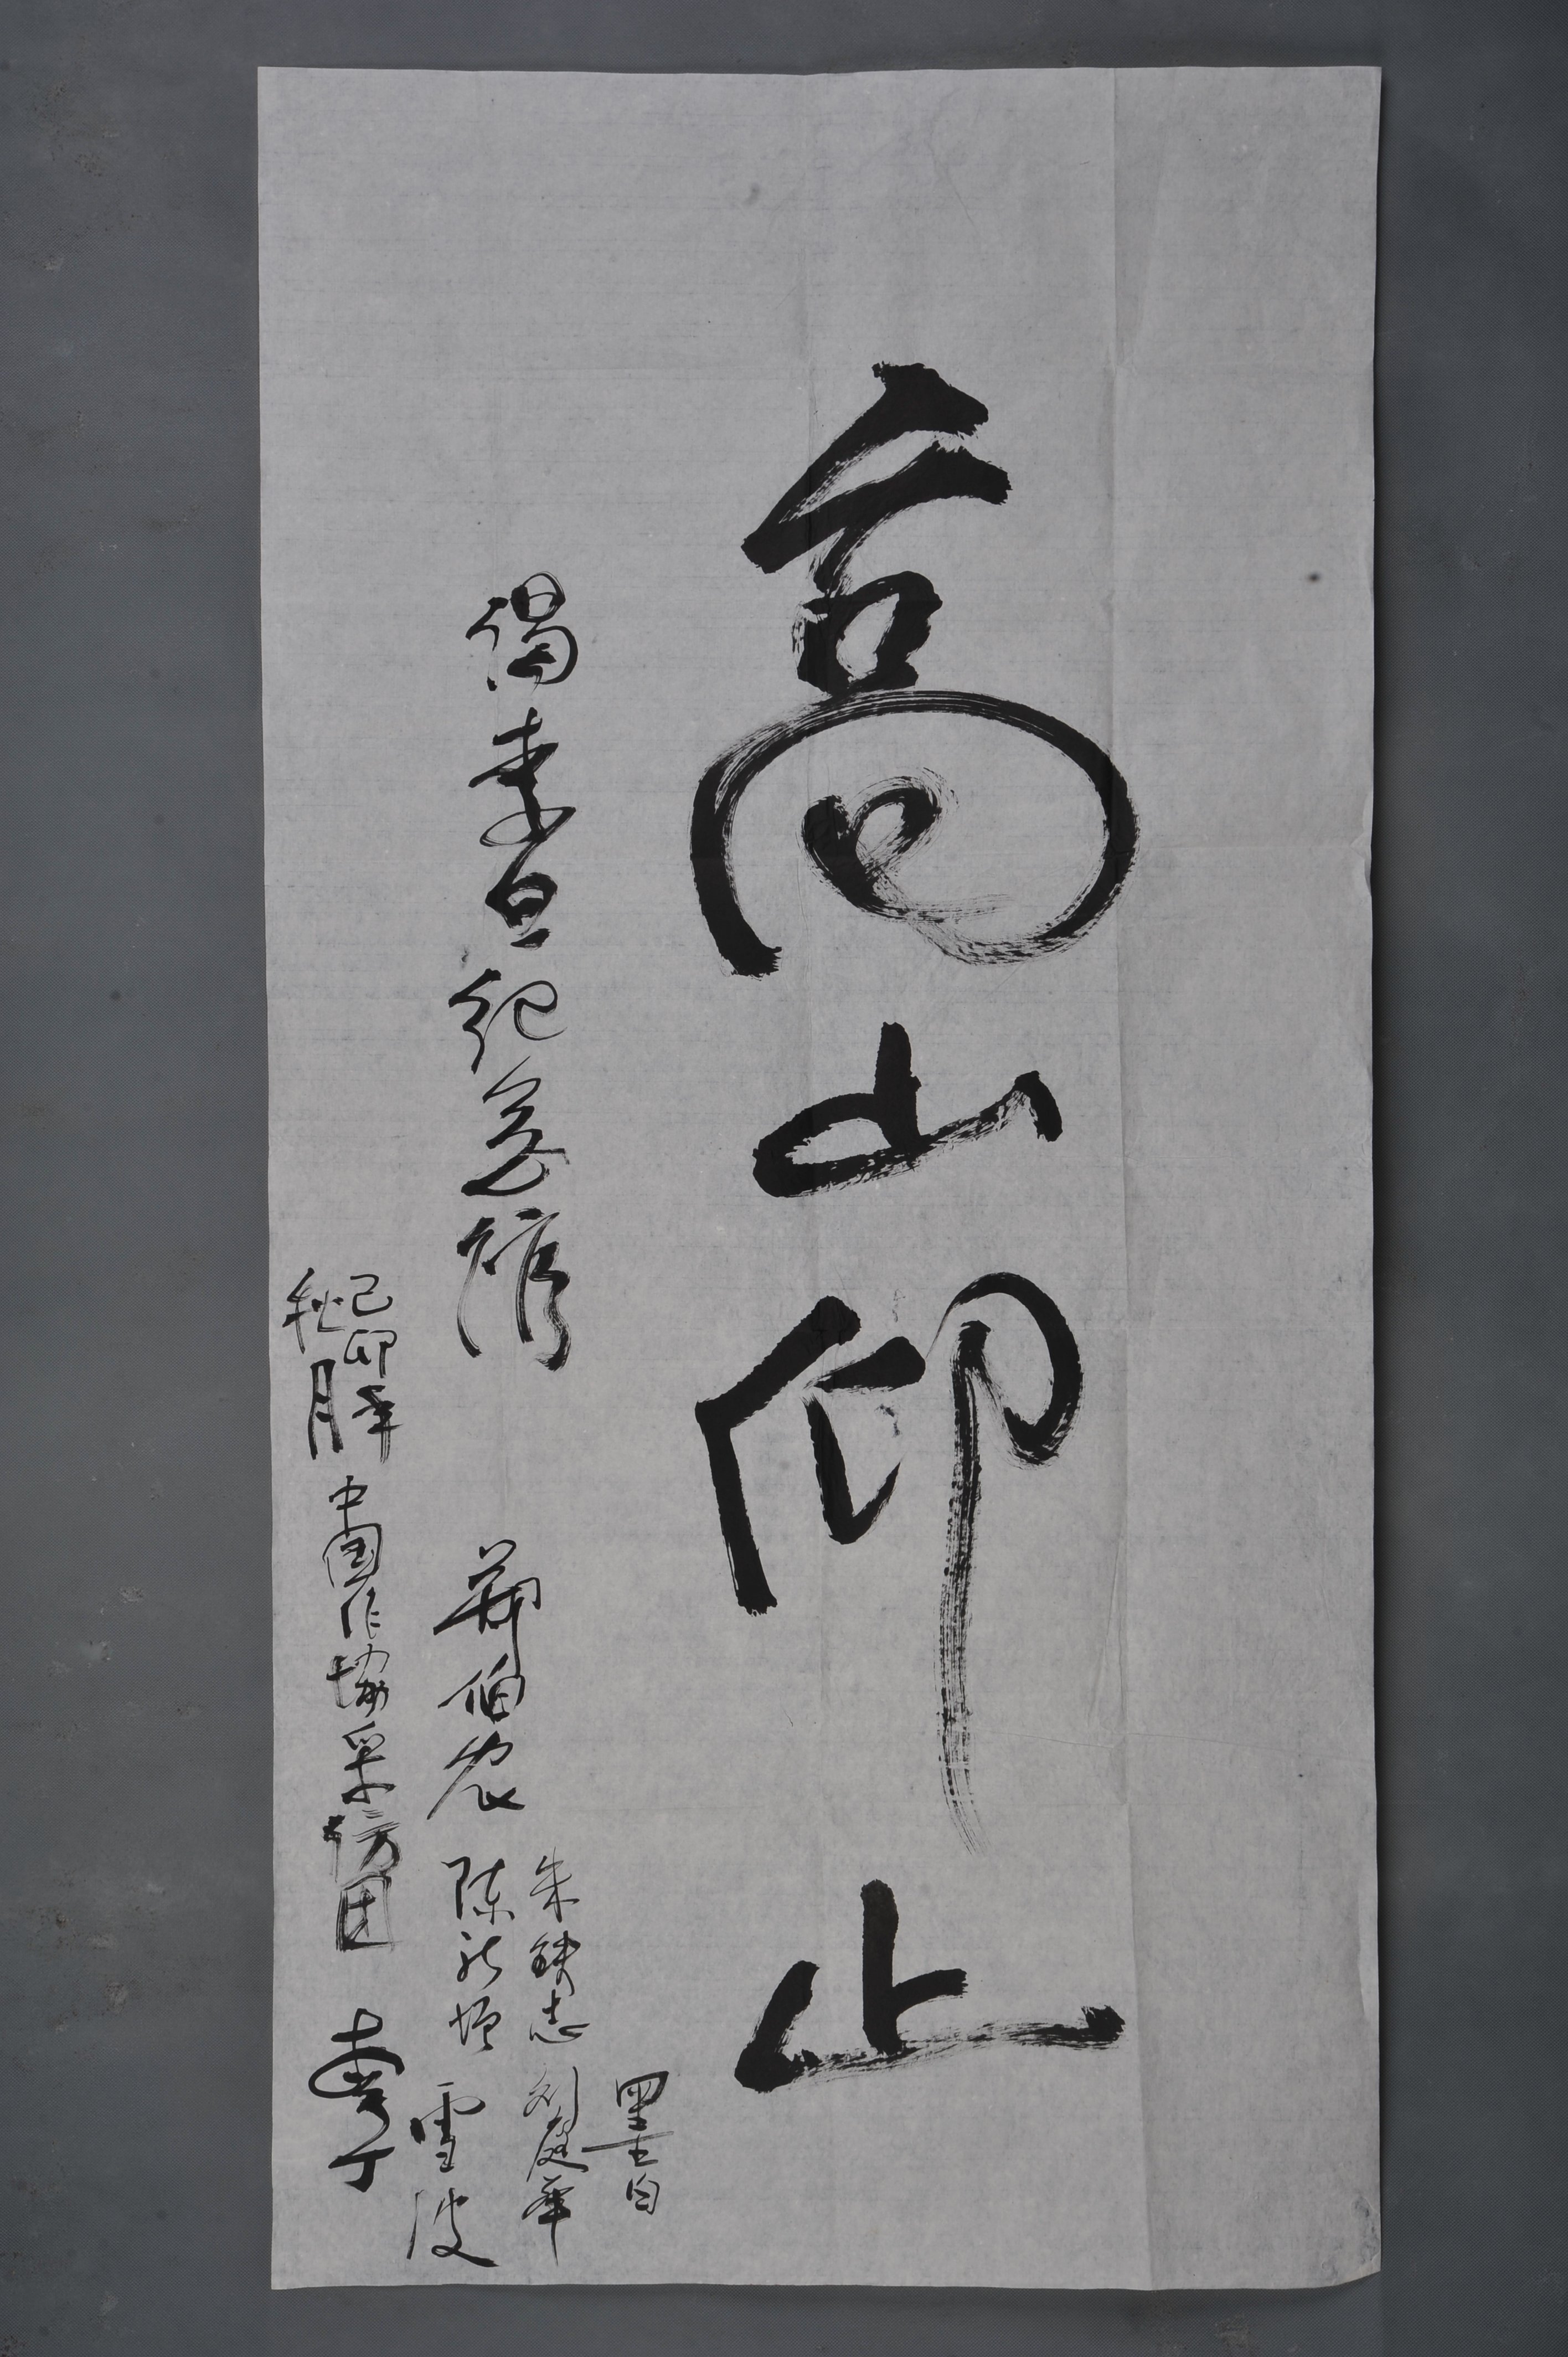 高山仰止
谒李白纪念馆
己卯年
秋月
中国作协采访团
郑伯农
朱铁志
陈新增
刘庭华
墨白
雪波